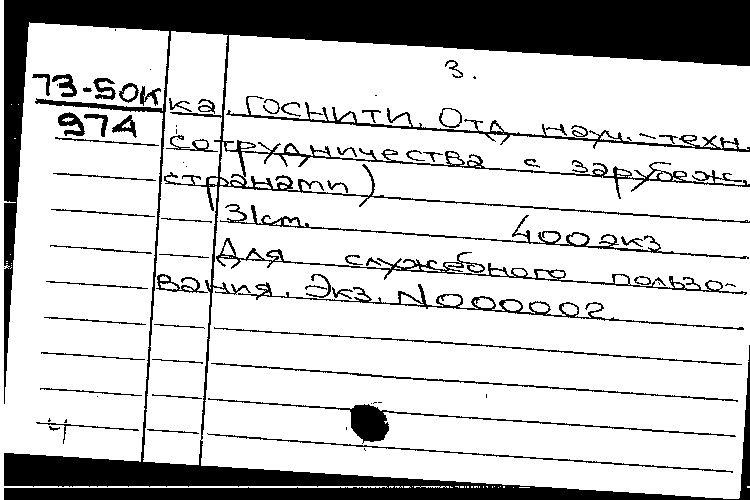 3.
73-50К
974
ка. ГОСНИТИ. Отд. науч.-техн.
сотрудничества с зарубеж.
странами)
31см. 400экз.
Для служебного пользо-
вания. Экз. N000002.
4